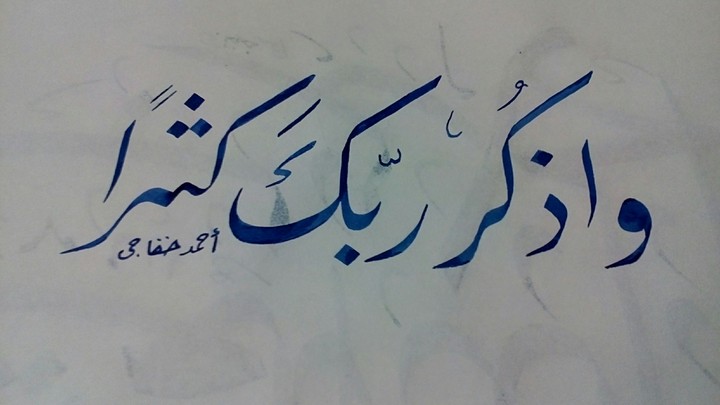 واذكُر ربّكَ كثيرًا
أحمد خفاجى